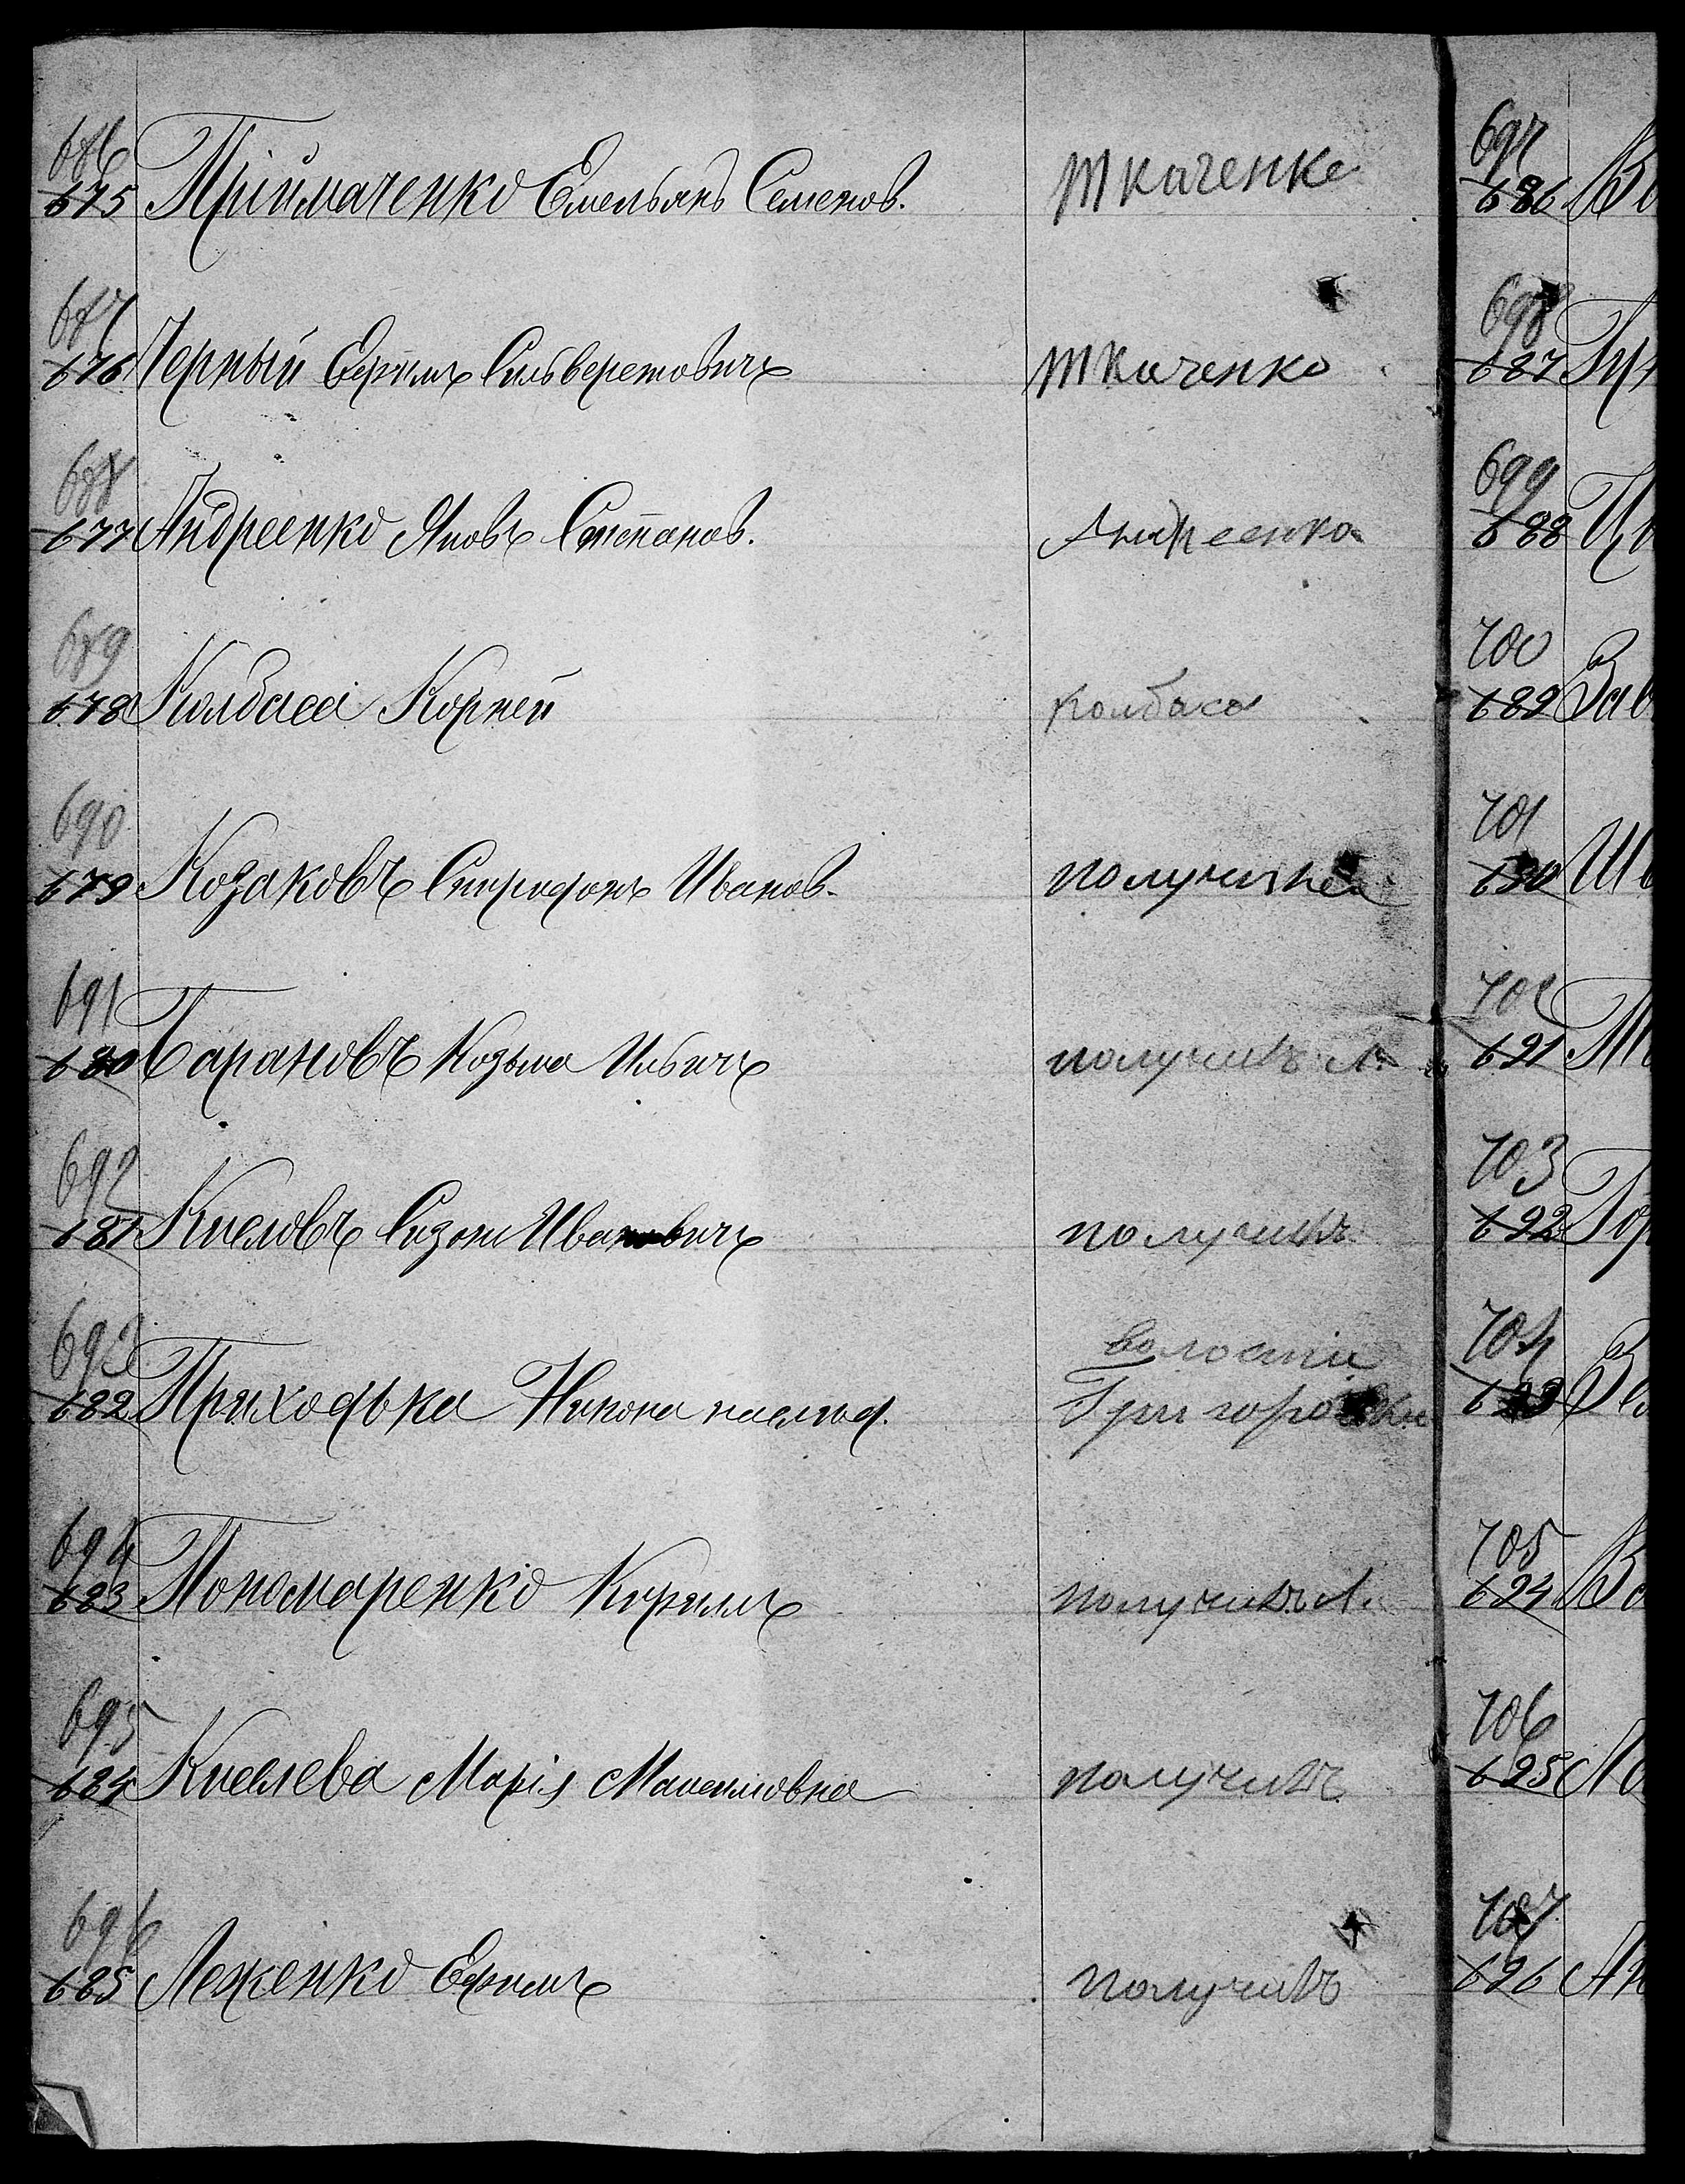 686
675 Приймаченко Емельянъ Семенов. Ткаченко
687
676 Черный Ефимъ Сильверстовичъ Ткаченко
688
677 Андреенко Яковъ Степанов. Андреенко
689
678 Колбаса Корней Колбаса
690
679 Козаковъ Спиридонъ Иванов.
691
680 Барановъ Козьма Ильичъ получилъ
692
681 Киселовъ Созонъ Ивановичъ получилъ
693 волости
682 Приходька Никона наслѣд.
694
683 Пономаренко Кирилъ получилъ
695
684 Киселева Марія получилъ
696
685 Леженко Ефимъ получилъ
697
686
698
687
699
688
700
689
701
690
702
691
703
692
704
693
705
694
706
695
707
696